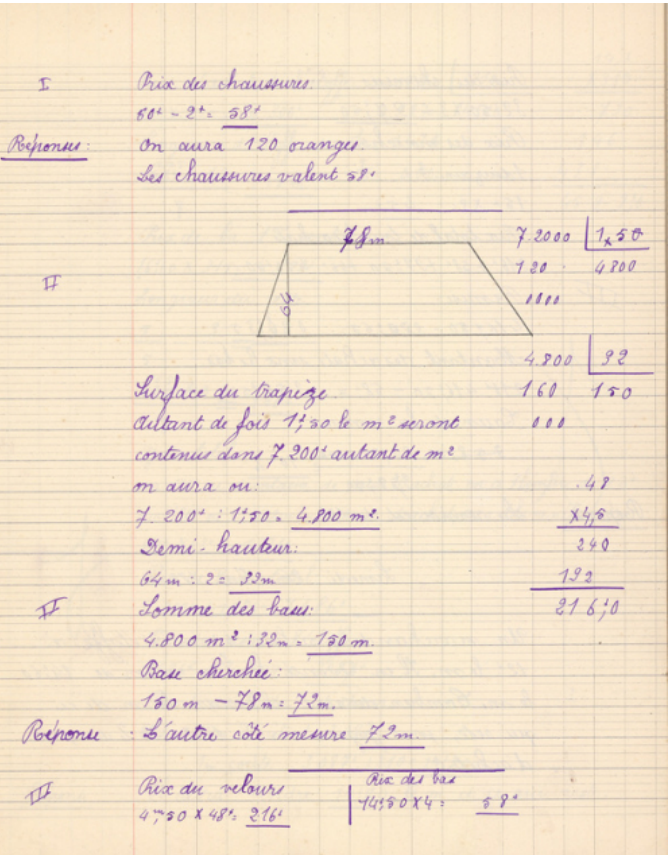 I Prix des chaussures:
60ᶠ - 2ᶠ = 58ᶠ
Réponses: On aura 120 oranges.
Les chaussures valent 58ᶠ
78m
7.2000 | 1,50
120 4800
000
II
64
4.800 | 32
160 150
000
Surface du trapèze.
Autant de fois 1ᶠ,50 le m² seront
contenus dans 7.200ᶠ autant de m²
on aura ou:
7.200ᶠ : 1ᶠ,50 = 4.800 m².
Demi-hauteur:
64m : 2 = 32m
II Somme des bases:
4.800 m² : 32m = 150 m.
Base cherchée:
150 m - 78m = 72m.
48
x4,5
240
192
216,0
Réponse : L'autre côté mesure 72m.
III Prix du velours
4ᵐ,50 X 48ᶠ = 216ᶠ
Prix des bas
14ᶠ,50 X 4 = 58ᶠ